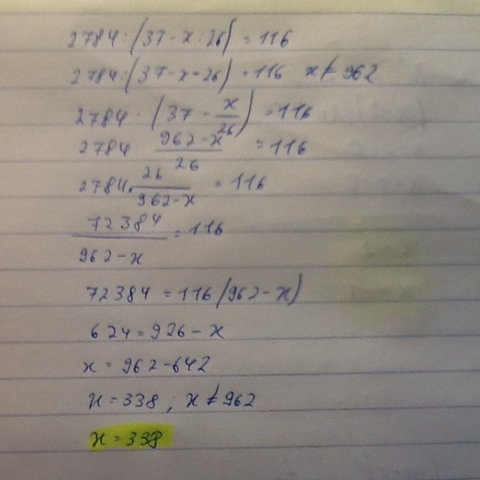 2784:(37-x:26)=116
2784:(37-x÷26)=116 x≠962
2784:(37-x/26)=116
2784 (962-x)/26 =116
2784·26/(962-x)=116
72384/(962-x)=116
72384=116(962-x)
624=926-x
x=962-642
x=338; x≠962
x=338